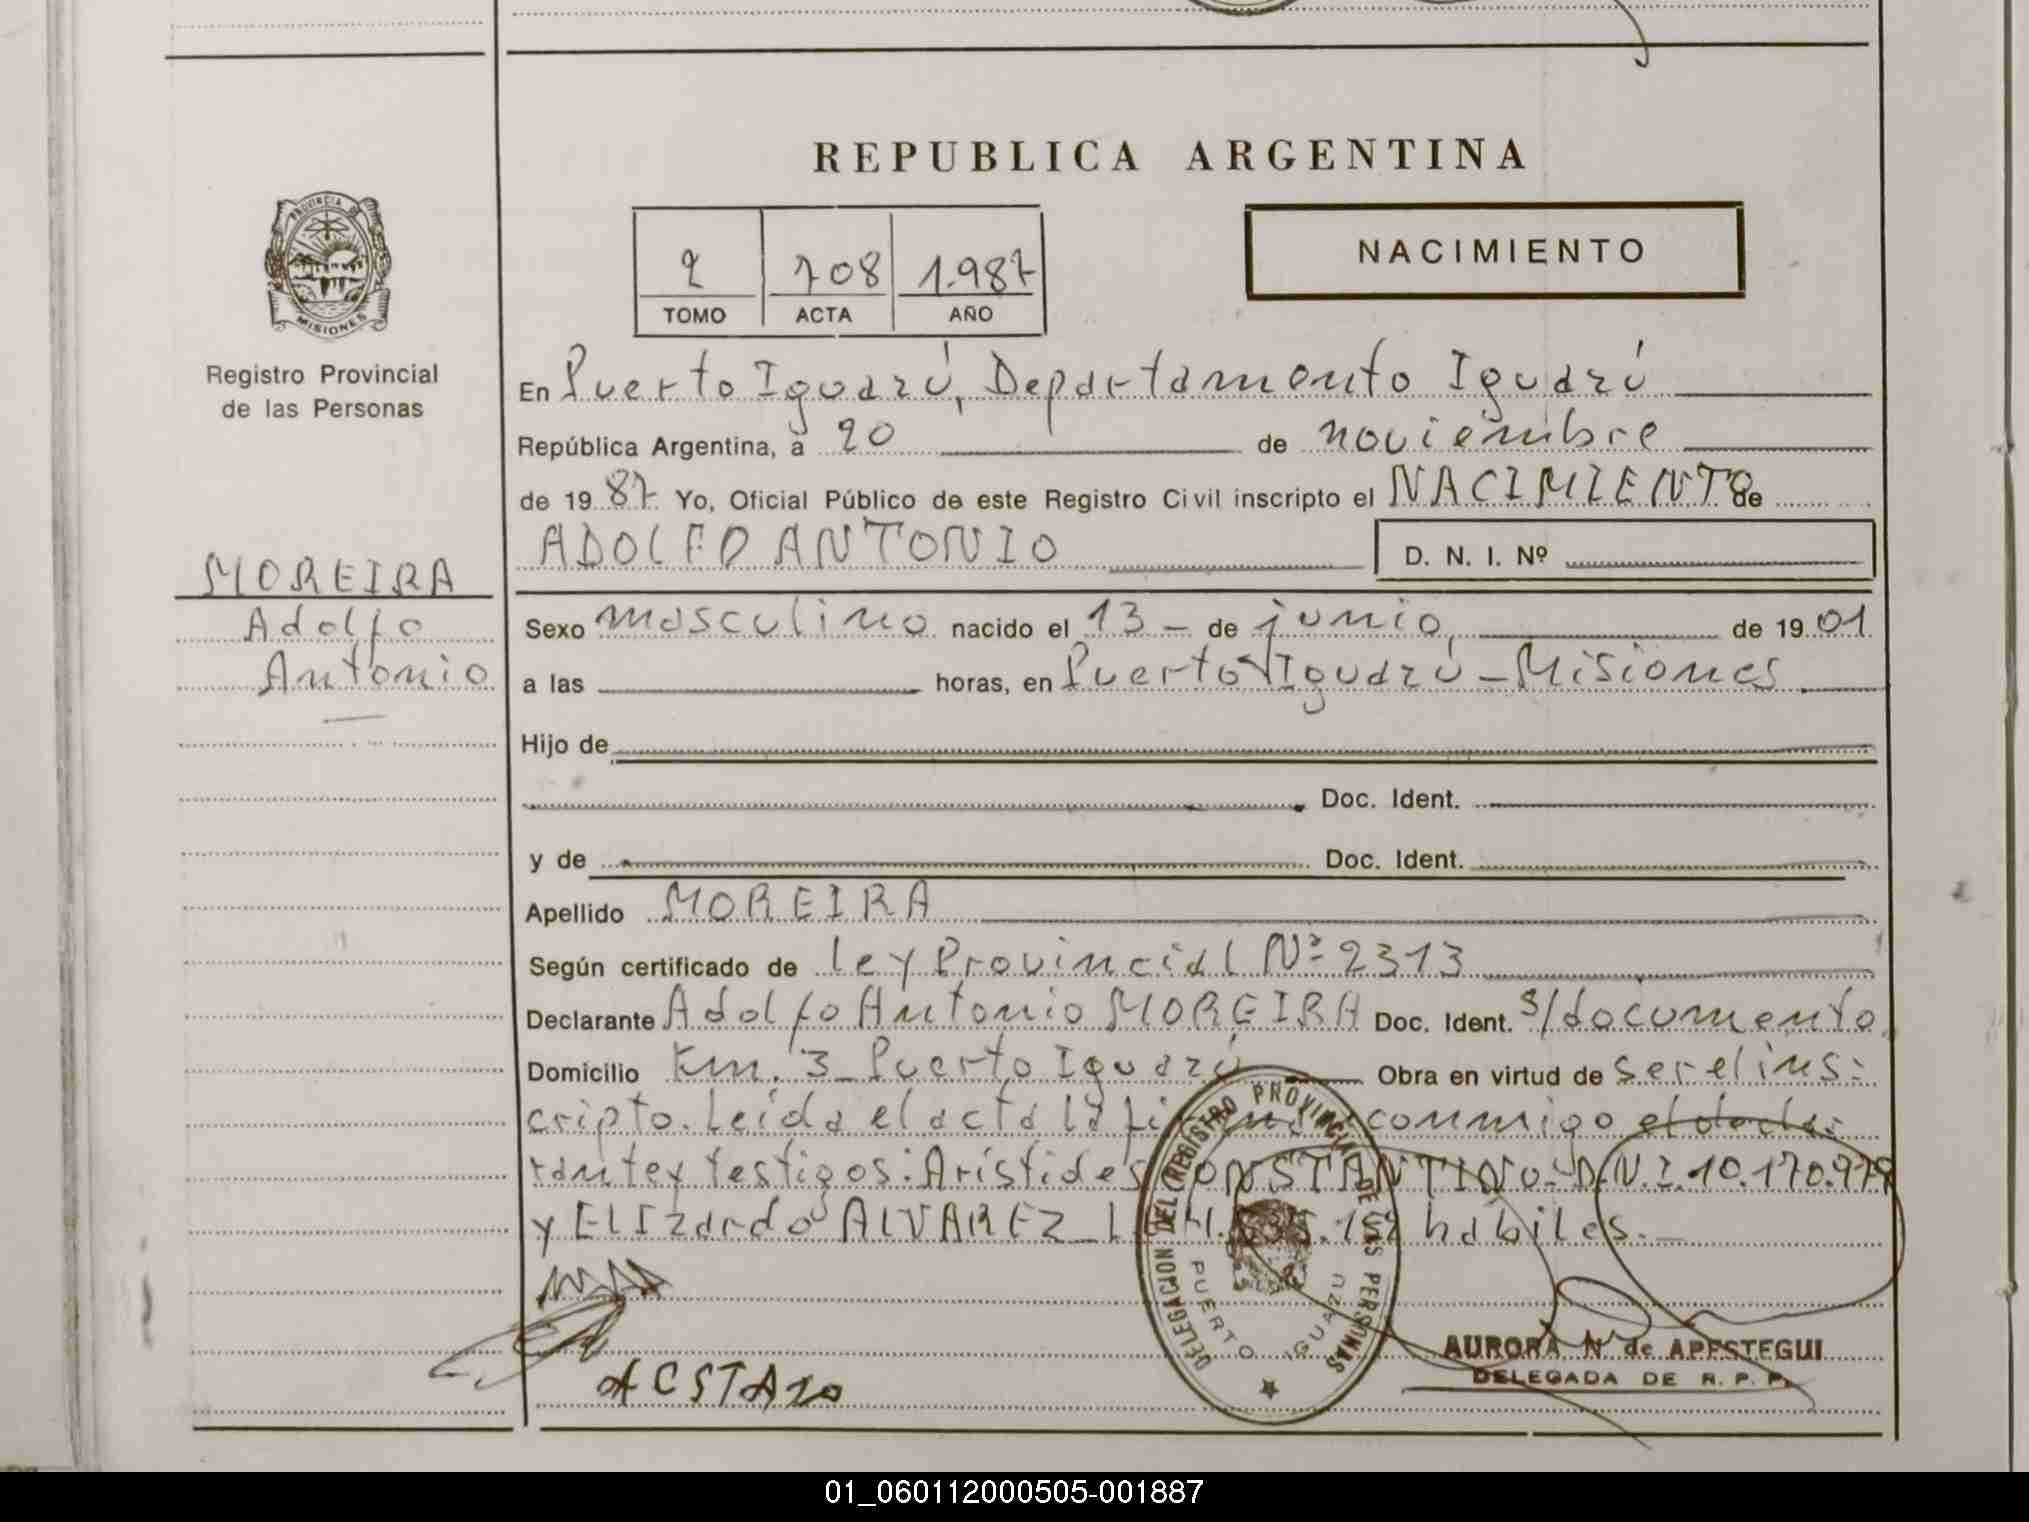 REPUBLICA ARGENTINA
PROVINCIA DE
MISIONES
Registro Provincial
de las Personas
2 708 1.987
TOMO ACTA AÑO
NACIMIENTO
En Puerto Iguazú, Departamento Iguazú
República Argentina, a 20 de noviembre
de 19 87 Yo, Oficial Público de este Registro Civil inscripto el NACIMIENTO de
ADOLFO ANTONIO D. N. I. Nº
MOREIRA
Adolfo
Antonio
Sexo masculino nacido el 13 - de junio, de 19 01
a las horas, en Puerto Iguazú - Misiones
Hijo de
Doc. Ident.
y de Doc. Ident.
Apellido MOREIRA
Según certificado de Ley Provincial Nº 2313
Declarante Adolfo Antonio MOREIRA Doc. Ident. s/documento
Domicilio Km. 3 - Puerto Iguazú Obra en virtud de ser el ins-
cripto. Leída el acta la conmigo el decla-
rante y testigos: Arístides CONSTANTINO - D.N.I. 10.170.979
y ELIzardo ALVAREZ hábiles. -
DELEGACION DEL REGISTRO PROVINCIAL DE LAS PERSONAS
PUERTO IGUAZU
AURORA N de APESTEGUI
DELEGADA DE R. P. P.
01_060112000505-001887